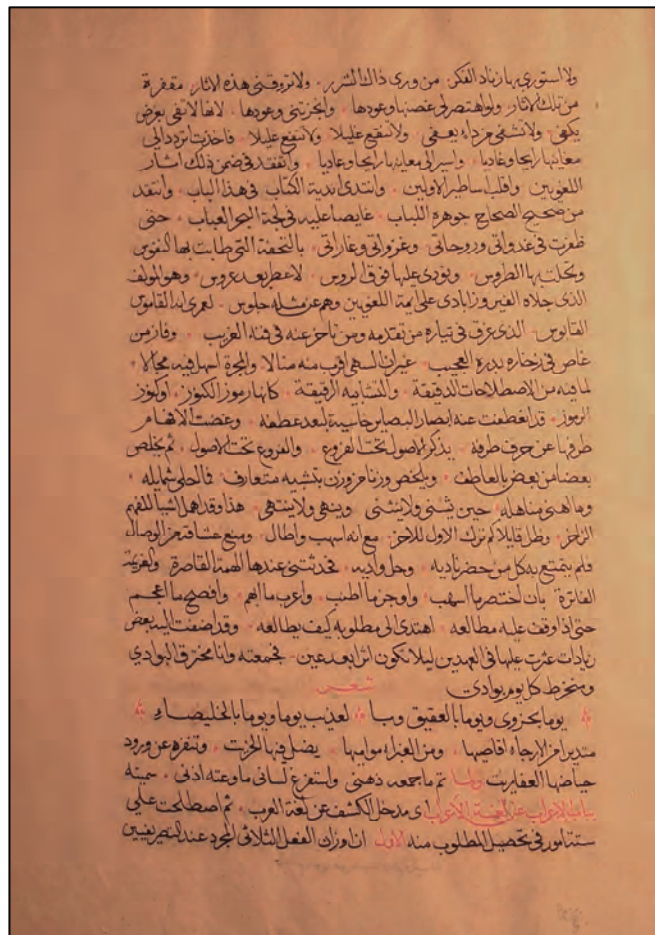 ولا استوري بها زناد الفكر من وري ذاك الشرر ولا تروقني هذه الآثار مقفرة
من تلك الآثار ولو اهتصر لي غصنها وعودها وانجزتني وعودها لانها لا تفي بعرض
يكفي ولا تشفي من داء يعفي ولا تنقع غليلا ولا تنفع عليلا فاخذت اتردد الى
مغانيها رايحا وغاديا واسير الى معانيها رايحا وغاديا واتفقد في ضمن ذلك اثار
اللغويين واقلب اساطير الاولين وانتدى اندية الكتاب في هذا الباب وانتقد
من صحيح الصحاح جوهره اللباب غايصا عليه في لجة البحر العباب حتى
ظفرت في غدواتي وروحاتي وغزواتي وغاراتي بالتحفة التي طابت لها النفوس
وتحلت بها الطروس ويؤدى عليها فوق الروس لا عطر بعد عروس وهو المولف
الذي جلاه الفيروزابادي على ايمة اللغويين وهم عن مثله جلوس لعمري انه القاموس
القانوس الذي غرق في تياره من تقدمه ومن تاخر عنه في فنه الغريب وفاز من
غاص في زخاره بدره العجيب غير ان السهى اقرب منه منالا والمجرة اسهل فيه مجالا
لما فيه من الاصطلاحات الدقيقة والتشابيه الرقيقة كانها رموز الكنوز او كنوز
الرموز قد انقطعت عنه ابصار البصاير خاسية لبعد عطفه وغضت الافهام
طرفها عن حرف طرفه يذكر الاصول تحت الفروع والفروع تحت الاصول ثم يخلص
بعضا من بعض بالعاطف ويلخص وزنا من وزن بتشبيه متعارف فما احلى شمايله
وما اهنى مناهله حين يثنى ولا ينثنى وينهى ولا ينتهى هذا وقد اهمل اشيا للفهم
الزاخر وظل قايلا كم ترك الاول للاخر مع انه اسهب واطال ومنع عشاقه من الوصال
فلم يتمتع به كل من حضر ناديه وحل واديه فحدثتني عندها الهمة القاصرة والقريحة
الفاترة بان اختصر ما اسهب واوجز ما اطنب واعرب ما ابهم وافصح ما اعجم
حتى اذا وقف عليه مطالعه اهتدى الى مطلوبه كيف يطالعه وقد اضفت اليه بعض
زيادات عثرت عليها في العهدين ليلا تكون اثرا بعد عين فجمعته وانا مخترق البوادي
ومنخرط كل يوم بوادي شعر
يوما بحزوى ويوما بالعقيق وبا لعذيب يوما ويوما بالخليصاء
متدبرا من الارجاء اقاصيها ومن الغبراء مواميها يضل فيها الخريت وتنفر عن ورود
حياضها العفاريت ولما تم ما جمعه ذهني واستفرغ لساني ما وعته اذني سميته
بباب الاعراب عن لغة الاعراب اي مدخل الكشف عن لغة العرب ثم اصطلحت على
ستة امور في تحصيل المطلوب منه الاول ان اوزان الفعل الثلاثي المجرد عند التصريفيين